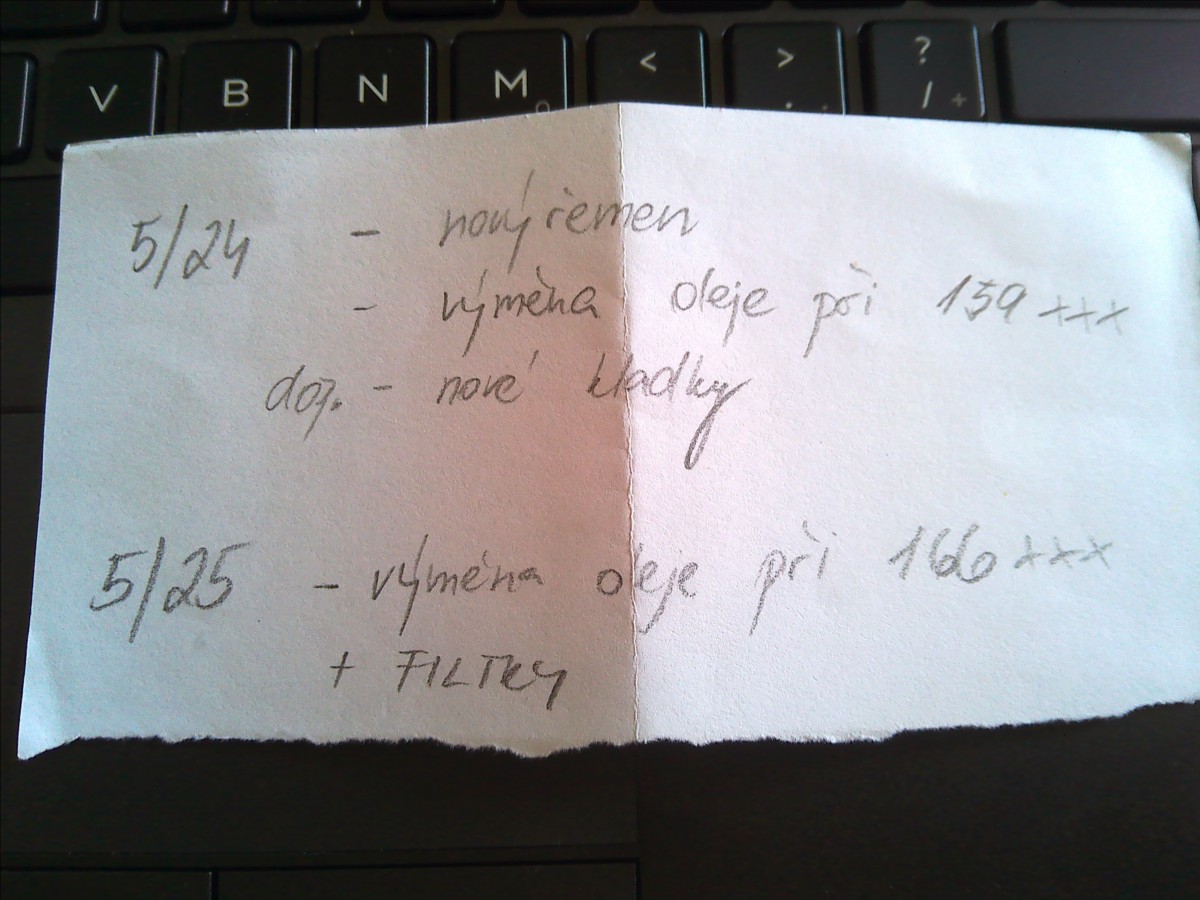 V B N M < > ? /
5/24 - nový řemen
- výměna oleje při 159 xxx
dop. - nové kladky
5/25 - výměna oleje při 166 xxx
+ FILTRY